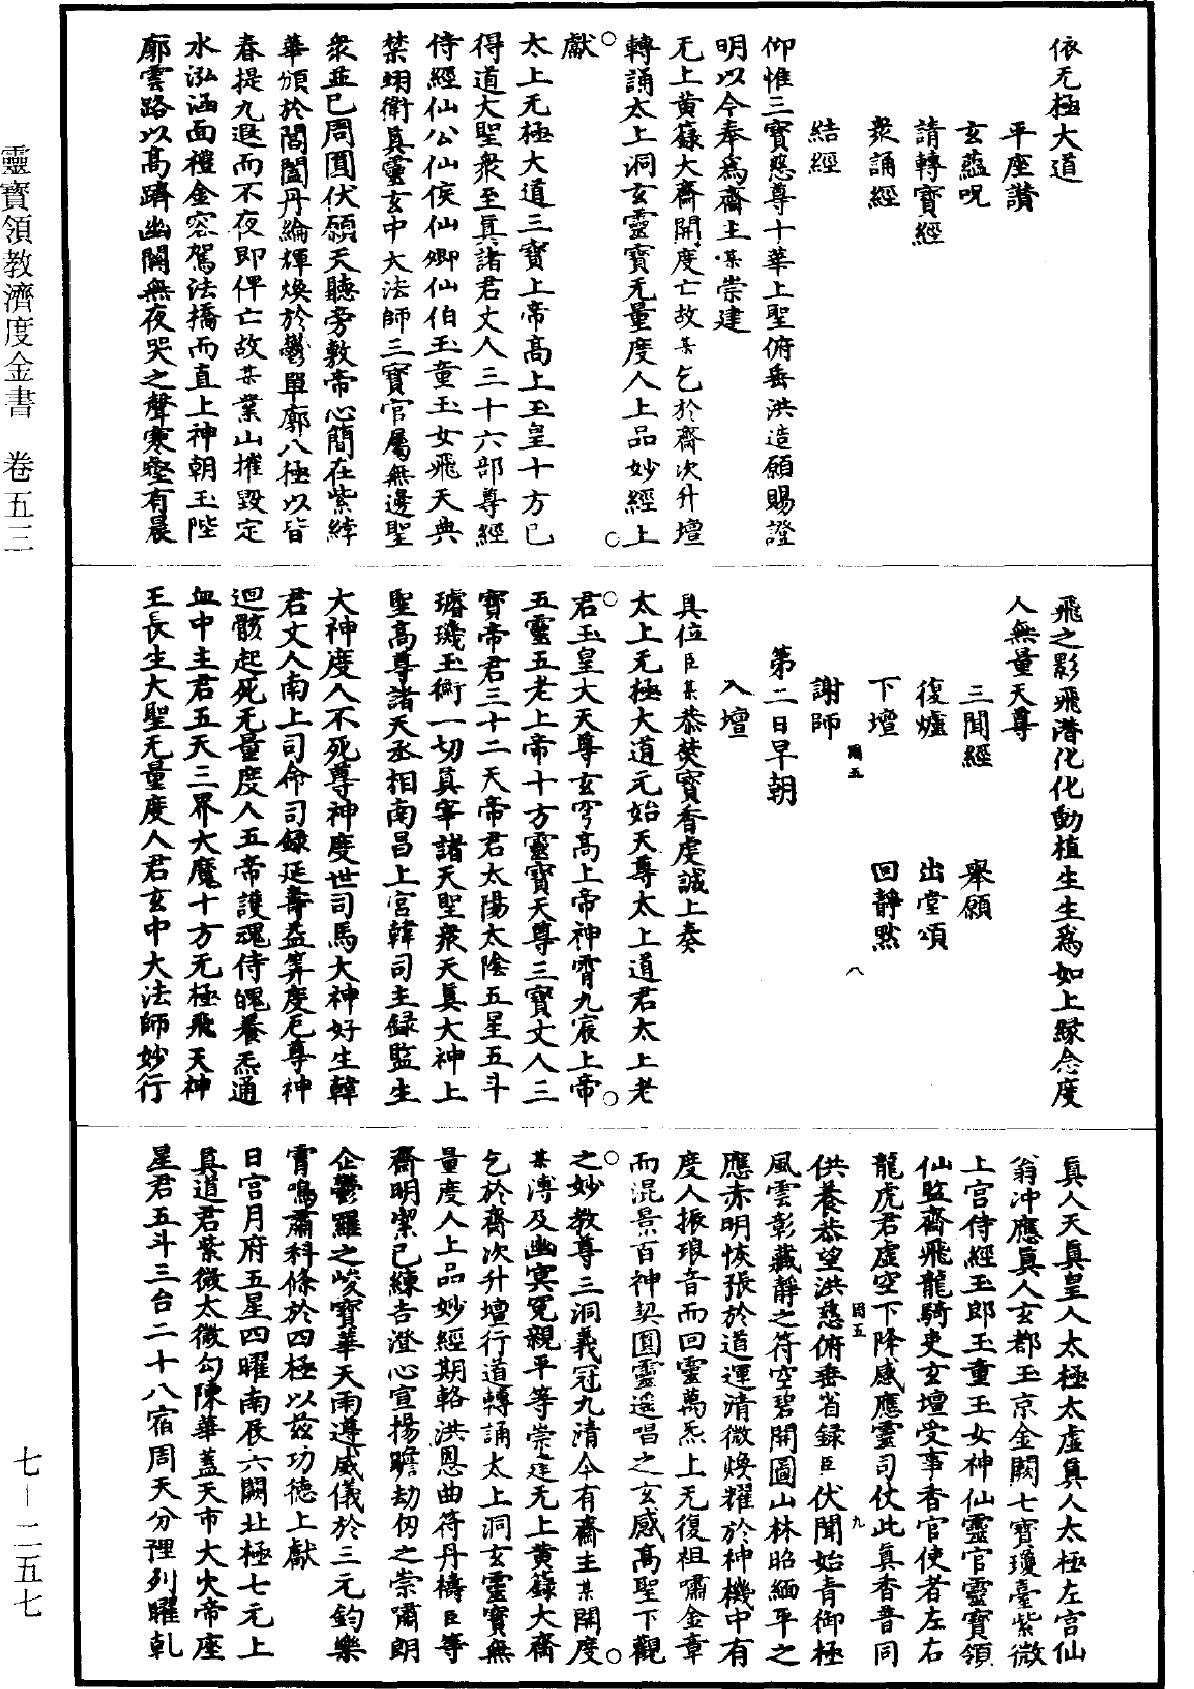 靈寶領教濟度金書　卷五三
七－二五七
依无極大道
平座讚
玄蘊呪
請轉寶經
衆誦經
結經
仰惟三寶慈尊十華上聖俯垂洪造願賜證
明以今奉爲齋主某崇建
无上黄籙大齋開度亡故某乞於齋次升壇
轉誦太上洞玄靈寶无量度人上品妙經上
獻
太上无極大道三寶上帝高上玉皇十方已
得道大聖衆至真諸君丈人三十六部尊經
侍經仙公仙侯仙卿仙伯玉童玉女飛天典
禁翊衛真靈玄中大法師三寶官屬無邊聖
衆並已周圓伏願天聽旁敷帝心簡在紫綍
華頒於閶闔丹綸輝煥於鬱單廓八極以皆
春提九遐而不夜即俾亡故某業山摧毀定
水泓涵面禮金容駕法橋而直上神朝玉陛
廓雲路以高躋幽關無夜哭之聲寒壑有晨
飛之影飛潛化化動植生生爲如上縁念度
人無量天尊
三聞經　　舉願
復爐　　出堂頌
下壇　　回靜黙
謝師
國五　八
第二日早朝
入壇
具位臣某恭焚寶香虔誠上奏
太上无極大道元始天尊太上道君太上老
君玉皇大天尊玄穹高上帝神霄九宸上帝
五靈五老上帝十方靈寶天尊三寶丈人三
寶帝君三十二天帝君太陽太陰五星五斗
璿璣玉衡一切真宰諸天聖衆天真大神上
聖高尊諸天丞相南昌上宮韓司主録監生
大神度人不死尊神度世司馬大神好生韓
君丈人南上司命司録延壽益算度厄尊神
迴骸起死无量度人五帝護魂侍魄養炁通
血中主君五天三界大魔十方无極飛天神
王長生大聖无量度人君玄中大法師妙行
真人天真皇人太極太虛真人太極左宮仙
翁沖應真人玄都玉京金闕七寶瓊臺紫微
上宮侍經玉郎玉童玉女神仙靈官靈寶領
仙監齋飛龍騎吏玄壇受事香官使者左右
龍虎君虛空下降感應靈司仗此真香普同
供養恭望洪慈俯垂省録臣伏聞始青御極
國五　九
風雲彰藏靜之符空碧開圖山林昭緬平之
應赤明恢張於道運清微煥耀於神機中有
度人振琅音而回靈萬炁上无復祖嘯金章
而混景百神契圓靈遥唱之玄感高聖下觀
之妙教尊三洞義冠九清今有齋主某開度
某溥及幽冥冤親平等崇建无上黄籙大齋
乞於齋次升壇行道轉誦太上洞玄靈寶無
量度人上品妙經期輅洪恩曲符丹禱臣等
齋明潔已練吉澄心宣揚瞻劫仭之崇嘯朗
企鬱羅之峻寶華天雨遵威儀於三元鈞樂
霄鳴肅科條於四極以兹功德上獻
日宮月府五星四曜南辰六闕北極七元上
真道君紫微太微勾陳華蓋天市大火帝座
星君五斗三台二十八宿周天分躔列曜乹